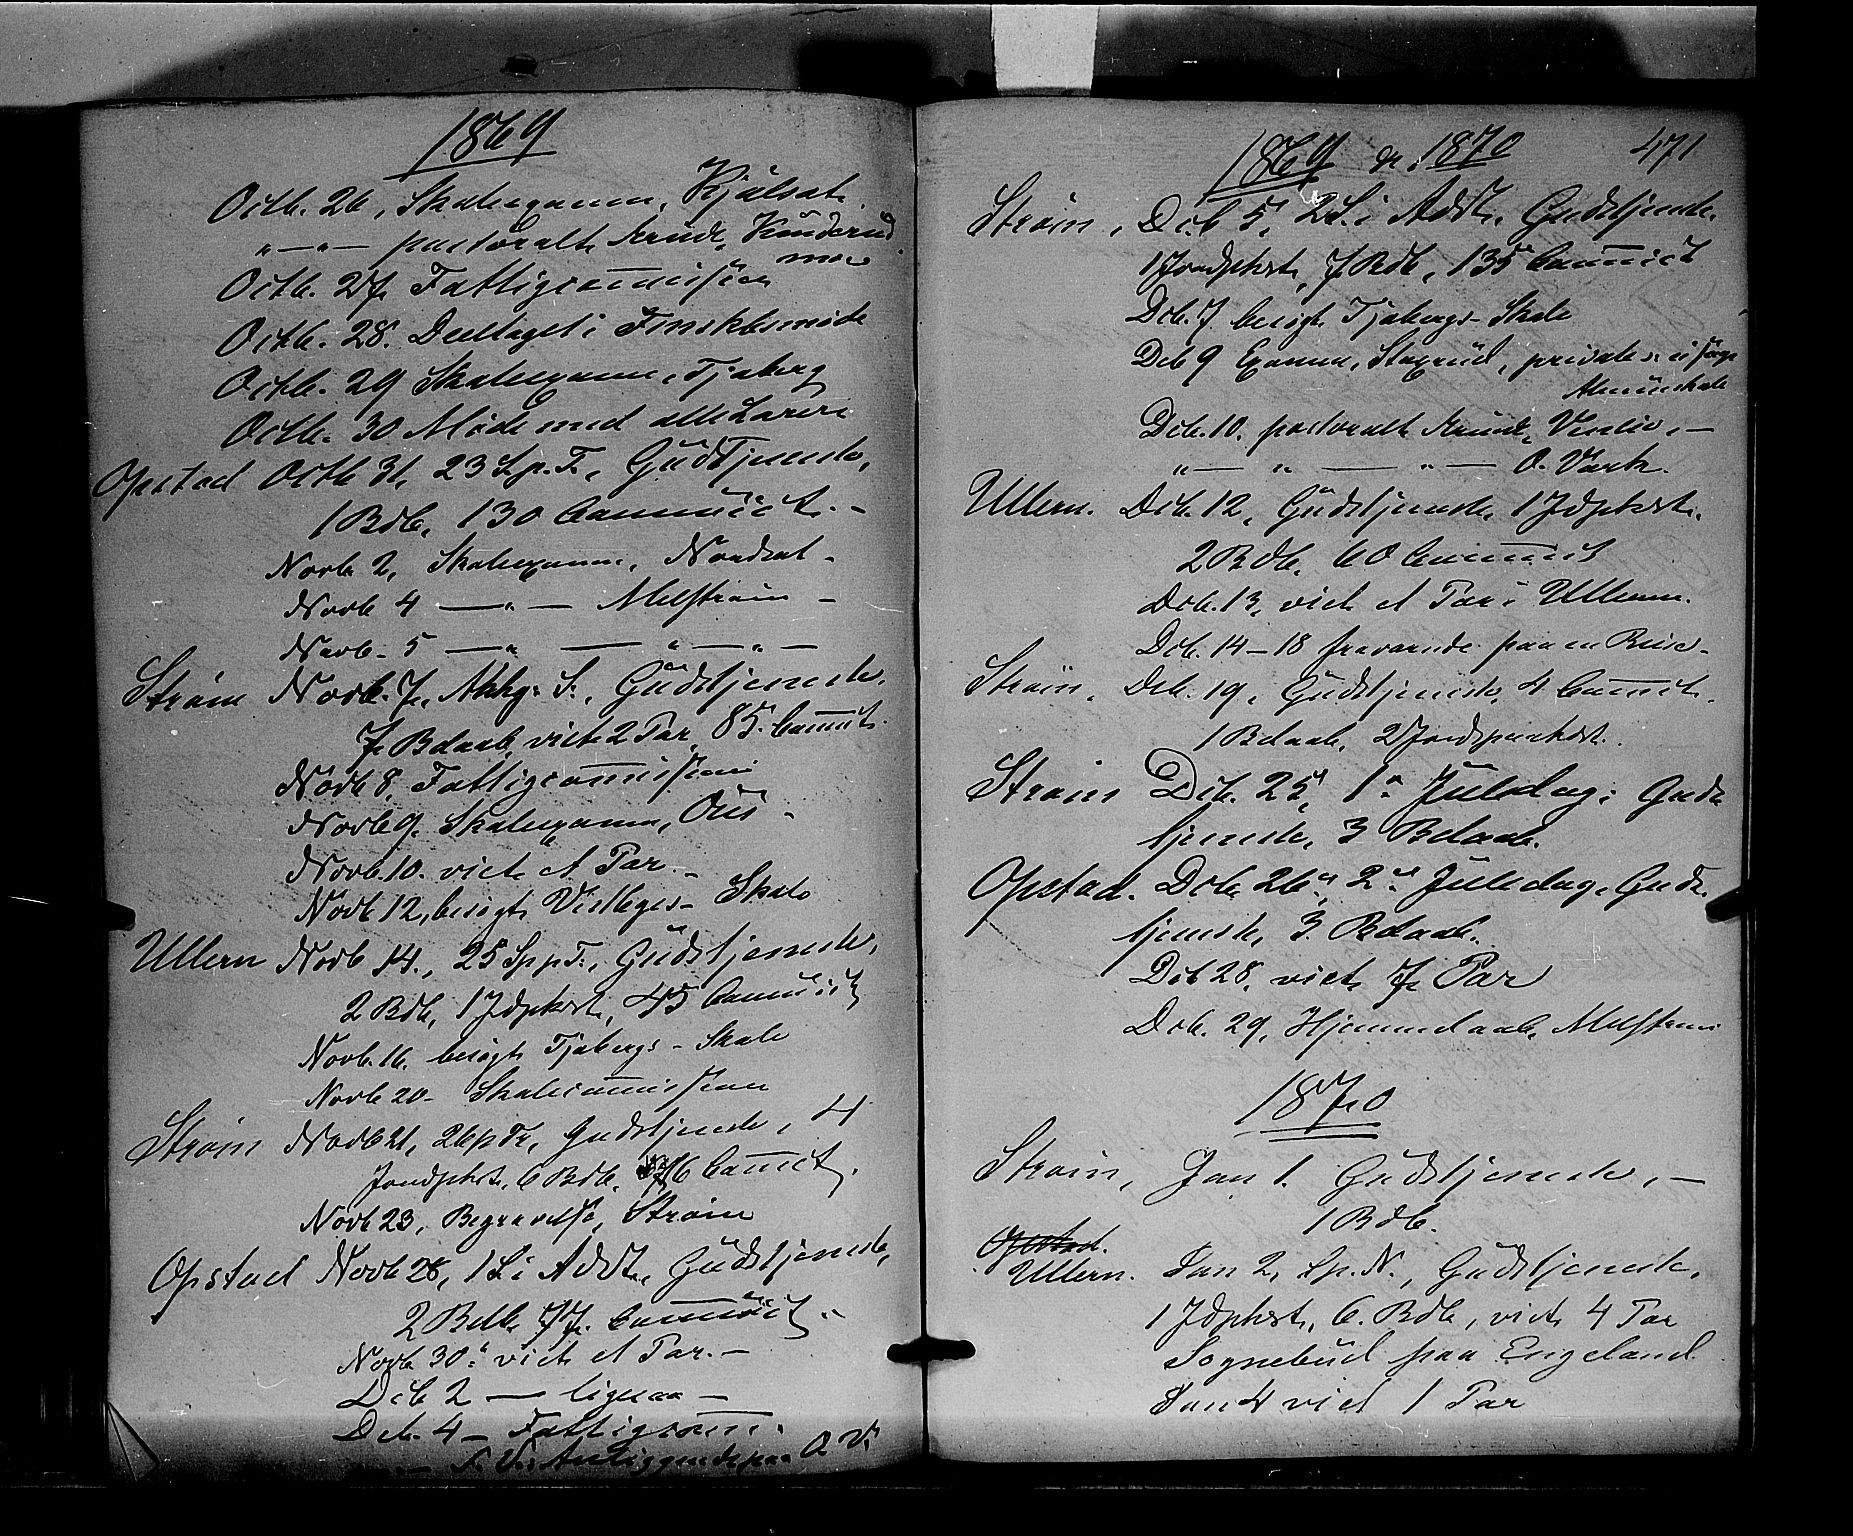 1869
Octb. 26, Skoleexamen, Kjölsæt.
" — " — pastoralt Ærinde, Kunderud
Octb. 27 Fattigcom̅ission
Octb. 28. Deeltaget i
Octb. 29 Skoleexamen, Tjaberg
Octb. 30 Møde med alle Lærere
Opstad Octb 31, 23 S. p. T., Gudstjeneste,
1 Bdb, 130 Communict. -
Novb 2, Skoleexamen, Nordset -
Novb 4 — " — Melstrøm -
Novb. 5 — " — " — " —
Strøm Novb. 7, Allhg. S., Gudstjeneste,
7 Bdaab, viet 2 Par, 85 Com̅ict.
Novb 8, Fattigcom̅ission
Novb 9. Skoleexamen, Ous -
Novb. 10. viet et Par -
Novb 12, besøgt - Skole
Ullern Novb 14., 25 S p. T., Gudstjeneste,
2 Bdb, 1 Jdpkst, 45 Communict
Novb. 16. besøgt Tjabergs - Skole
Novb 20 - Skolecom̅ission
Strøm Novb 21, 26 p Tr, Gudstjeneste, 4
Jordpkst, 6 Bdb, 76 Com̅ict.
Novb 23, Begravelse, Strøm
Opstad Novb 28, 1 S. i Advt., Gudstjeneste,
2 Bdb, 77 Com̅uict. -
Novb 30. viet et Par. -
Dcb 2 — ligesaa -
Dcb. 4 - Fattigcom̅.
Anliggende paa O. V.
1869 og 1870 471
Strøm, Dcb 5, 2 S. i Advt., Gudstjeneste.
1 Jordpkst, 7 Bdb, 135 Com̅uict
Dcb. 7 besøgt Tjabergs - Skole
Dcb 9 Examen, Staxrud, private
Almueskole
Dcb. 10. pastoralt Ærinde, —
" — " — " — O. Vark.
Ullern. Dcb. 12, Gudstjeneste, 1 Jdpkst.
2 Bdb, 60 Com̅uict
Dcb. 13, viet et Par i Ullern.
Dcb. 14 - 18 fraværende paa en Reise -
Strøm, Dcb. 19, Gudstjeneste, 4 Com̅ict.
1 Bdaab, 2 Jordspaakst.
Strøm Dcb. 25, 1ste Juledag: Guds
tjeneste, 3 Bdaab.
Opstad. Dcb. 26, 2den Juledag, Guds
tjeneste, 3. Bdaab.
Dcb 28, viet 7 Par
Dcb. 29, Hjemmedaab, Melstrøm
1870
Strøm, Jan 1. Gudstjeneste, —
1 Bdb.
Opstad.
Ullern. Jan 2, S. p. N., Gudstjeneste,
1 Jdpkst, 6. Bdb, viet 4 Par
Sognebud paa Engeland
Jan 4 viet 1 Par